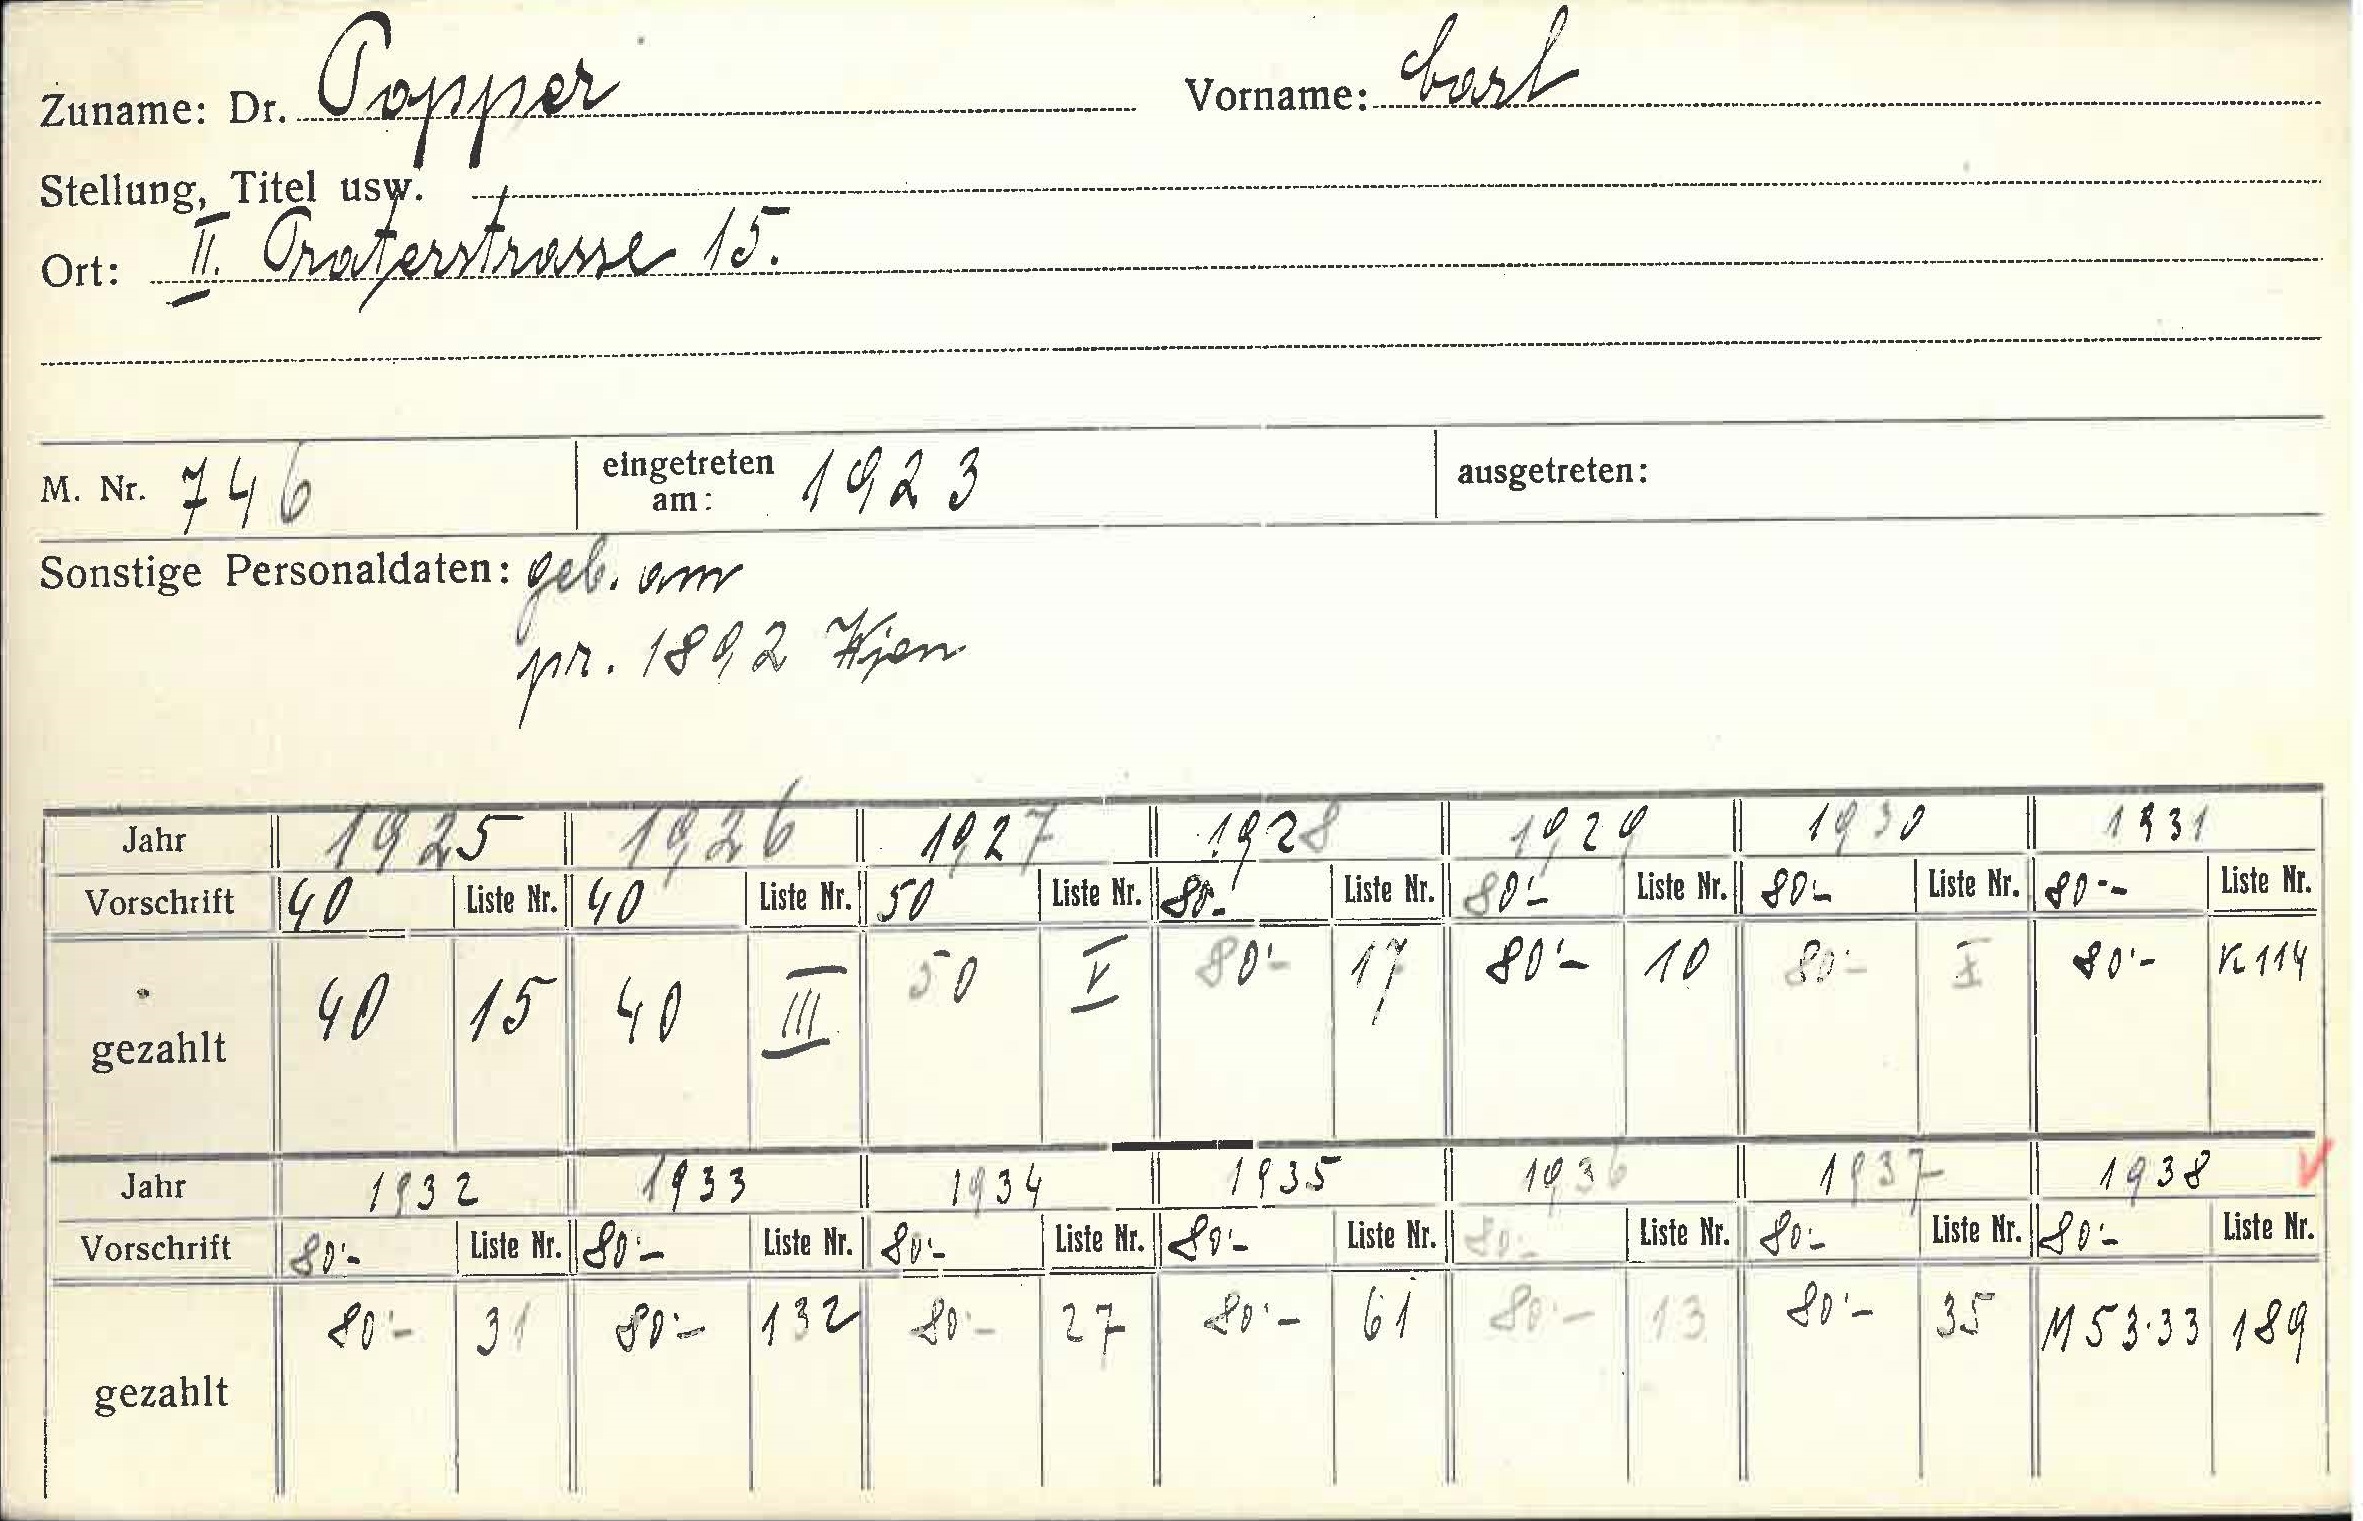 Zuname: Dr. Popper Vorname: Carl
Stellung, Titel usw.
Ort: II. Praterstrasse 15.
M. Nr. 746 eingetreten am: 1923 ausgetreten:
Sonstige Personaldaten: geb. am
pr. 1892 Wien
Jahr 1925 1926 1927 1928 1929 1930 1931
Vorschrift 40 Liste Nr. 40 Liste Nr. 50 Liste Nr. 80.- Liste Nr. 80'- Liste Nr. 80'- Liste Nr. 80'- Liste Nr.
gezahlt 40 15 40 III 50 V 80'- 17 80'- 10 80'- I 80'- K 114
Jahr 1932 1933 1934 1935 1936 1937 1938
Vorschrift 80'- Liste Nr. 80'- Liste Nr. 80'- Liste Nr. 80'- Liste Nr. 80'- Liste Nr. 80'- Liste Nr. 80'- Liste Nr.
gezahlt 80'- 31 80'- 132 80'- 27 80'- 61 80'- 13 80'- 35 M 53.33 189